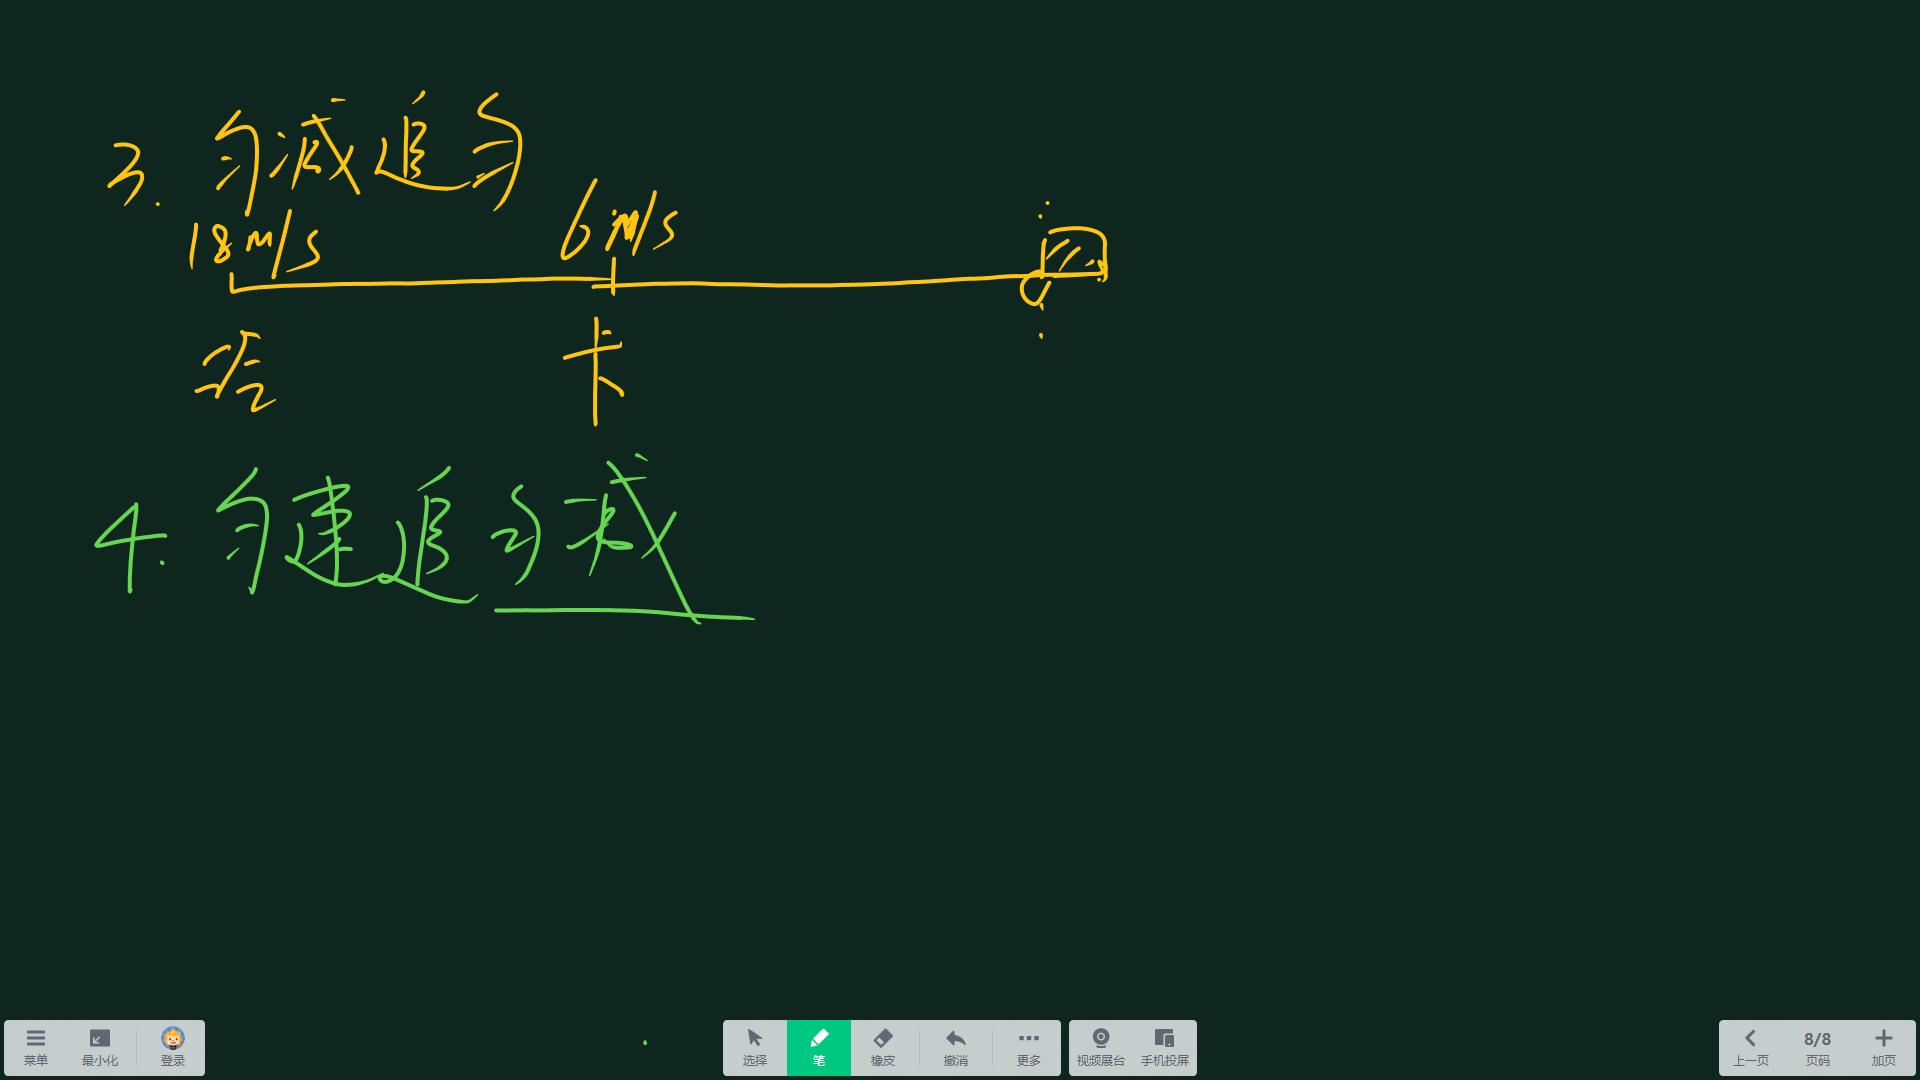 3. 匀减追匀
18m/s 6m/s
卡
4. 匀速追匀减
菜单 最小化 登录 选择 笔 橡皮 撤消 更多 视频展台 手机投屏 上一页 8/8 页码 加页